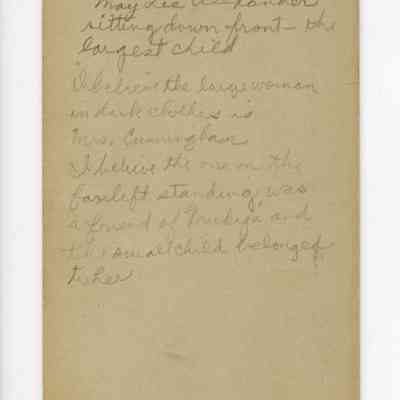 May Lee Alexander
sitting down front - the
largest child
I believe the large woman
in dark clothes is
Mrs. Cunningham
I believe the one on the
far left standing was
a friend of and
the small child belonged
to her